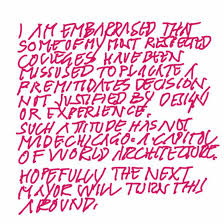 I AM EMBARRASED THAT
SOME OF MY MOST RESPECTED
COLLEGES HAVE BEEN
MISSUSED TO PLACATE A
PREMITIDATES DECISION
NOT JUSTIFIED BY DESIGN
OR EXPERIENCE.
SUCH ATITUDE HAS NOT
MADE CHICAGO A CAPITOL
OF WORLD ARCHITECTURE.
HOPEFULLY THE NEXT
MAYOR WILL TURN THIS
AROUND.